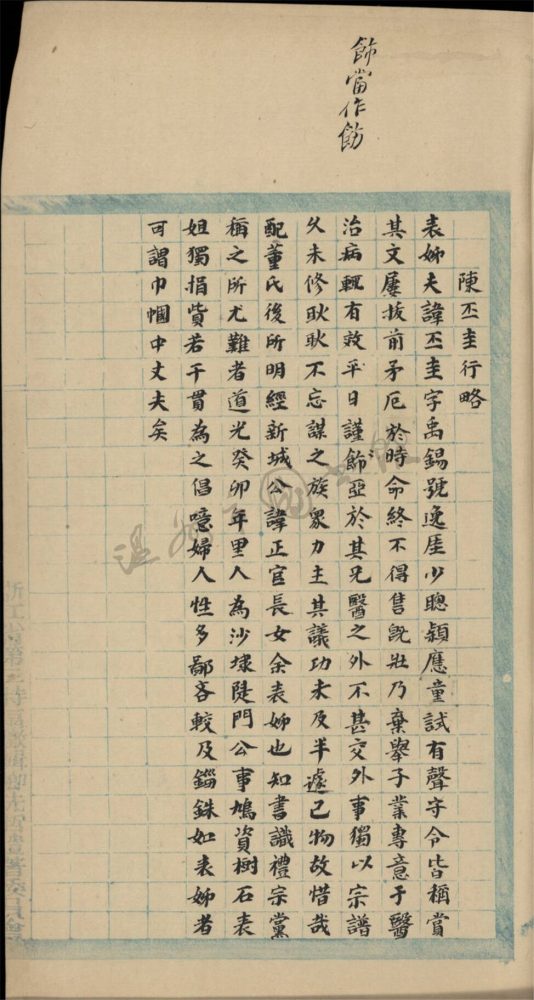 飾當作飭
陳丕圭行略
表姊夫諱丕圭字禹錫號逸厓少聰穎應童試有聲守令皆稱賞
其文屢拔前矛厄於時命終不得售旣壯乃棄舉子業專意于醫
治病輒有效平日謹飾亞於其兄醫之外不甚交外事獨以宗譜
久未修耿耿不忘謀之族衆力主其議功未及半遽已物故惜哉
配董氏後所明經新城公諱正官長女余表姊也知書識禮宗黨
稱之所尤難者道光癸卯年里人為沙埭陡門公事鳩資樹石表
姐獨捐貲若干貫為之倡噫婦人性多鄙吝較及錙銖如表姊者
可謂巾幗中丈夫矣